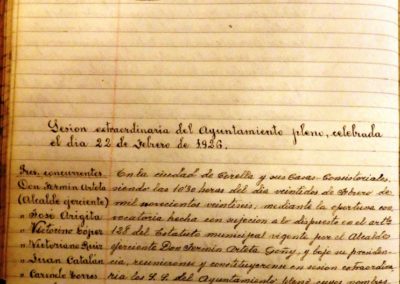 Sesion extraordinaria del Ayuntamiento pleno, celebrada
el dia 22 de Febrero de 1926.
Sres. concurrentes. En la ciudad de Corella y sus Casas-Consistoriales
Don Fermín Arteta siendo las 10'30 horas del día veintidos de Febrero de
(Alcalde ejerciente) mil novecientos veintiseis, mediante la oportuna con-
" José Arigita vocatoria hecha con sujecion a lo dispuesto en el artº
" Victorino López 128 del Estatuto municipal vigente por el Alcalde
" Victoriano Ruiz ejerciente Don Fermín Arteta Goñy, y bajo su presiden-
" Juan Catalán cia, reunieronse y constituyeronse en sesion extraordina-
" Torres ria los S.S. del Ayuntamiento pleno cuyos nombres